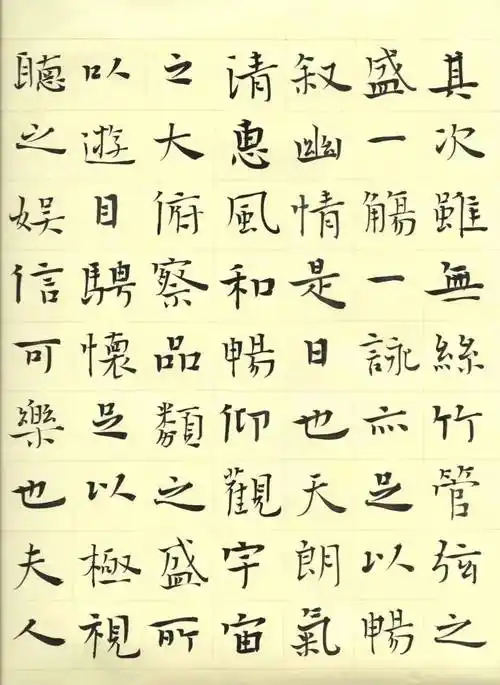 其次雖無絲竹管弦之
盛一觴一詠亦足以暢
叙幽情是日也天朗氣
清惠風和暢仰觀宇宙
之大俯察品類之盛所
以遊目騁懷足以極視
聽之娛信可樂也夫人